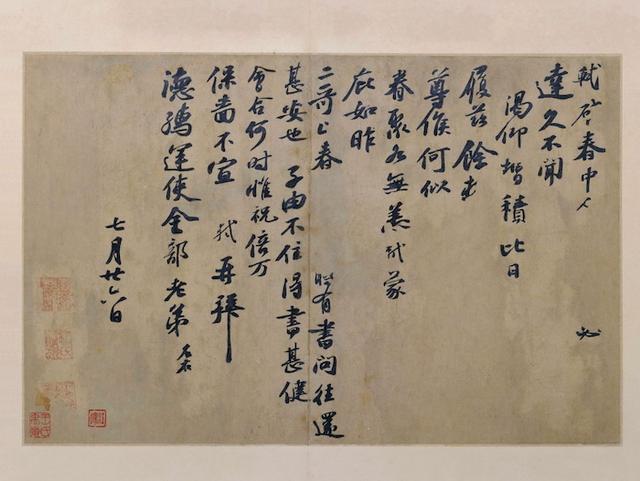 軾啓春中人必
達久不聞
渴仰增積比日
履茲餘
尊候何似
眷聚各無恙軾蒙
庇如昨
二哥上春有書問往還
甚安也子由不住得書甚健
會合何時惟祝倍万
保嗇不宣軾再拜
德孺運使金部老弟左右
七月廿六日